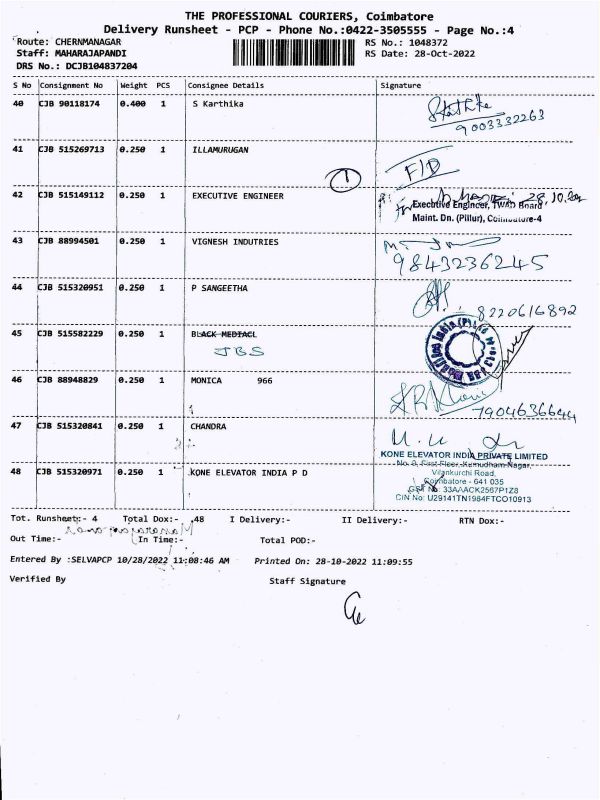 THE PROFESSIONAL COURIERS, Coimbatore
Delivery Runsheet - PCP - Phone No.:0422-3505555 - Page No.:4
Route: CHERNMANAGAR RS No.: 1048372
Staff: MAHARAJAPANDI RS Date: 28-Oct-2022
DRS No.: DCJB104837204
S No Consignment No Weight PCS Consignee Details Signature
40 CJB 90118174 0.400 1 S Karthika
9003332263
41 CJB 515269713 0.250 1 ILLAMURUGAN
F/D
1
42 CJB 515149112 0.250 1 EXECUTIVE ENGINEER
Executive Engineer, TWAD Board
Maint. Dn. (Pillur), Coimbatore-4
43 CJB 88994501 0.250 1 VIGNESH INDUTRIES
9843236245
44 CJB 515320951 0.250 1 P SANGEETHA
8220616892
45 CJB 515582229 0.250 1 BLACK MEDIACL
JBS
46 CJB 88948829 0.250 1 MONICA 966
7904636644
47 CJB 515320841 0.250 1 CHANDRA
KONE ELEVATOR INDIA PRIVATE LIMITED
No. 8, First Floor, Kumudham Nagar,
48 CJB 515320971 0.250 1 KONE ELEVATOR INDIA P D
Vilankurchi Road,
Coimbatore - 641 035
GST No: 33AAACK2567P1Z8
CIN No: U29141TN1984FTCO10913
Tot. Runsheet:- 4 Total Dox:- 48 I Delivery:- II Delivery:- RTN Dox:-
Out Time:- In Time:- Total POD:-
Entered By :SELVAPCP 10/28/2022 11:08:46 AM Printed On: 28-10-2022 11:09:55
Verified By Staff Signature